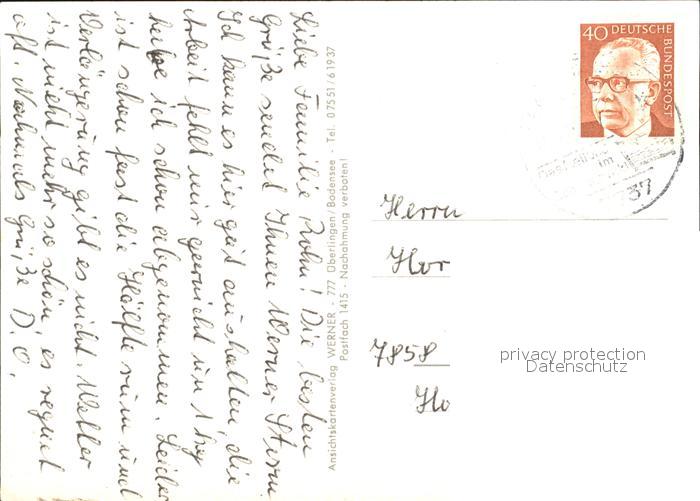 Liebe Familie Rohn! Die besten
Grüße sendet Ihnen Werner Sturm
Ich kann es hier gut aushalten, die
Arbeit fehlt mir garnicht um 1 kg
habe ich schon abgenommen. Leider
ist schon fast die Hälfte rum und
Verlängerung gibt es nicht. Wetter
ist nicht mehr so schön, es regnet
oft. Nochmals Grüße D. O.
Ansichtskartenverlag WERNER - 777 Überlingen/Bodensee - Tel. 07551/61937
Postfach 1415 - Nachahmung verboten!
40 DEUTSCHE
BUNDESPOST
im
37
Herrn
Hor
7858
Ho
privacy protection
Datenschutz